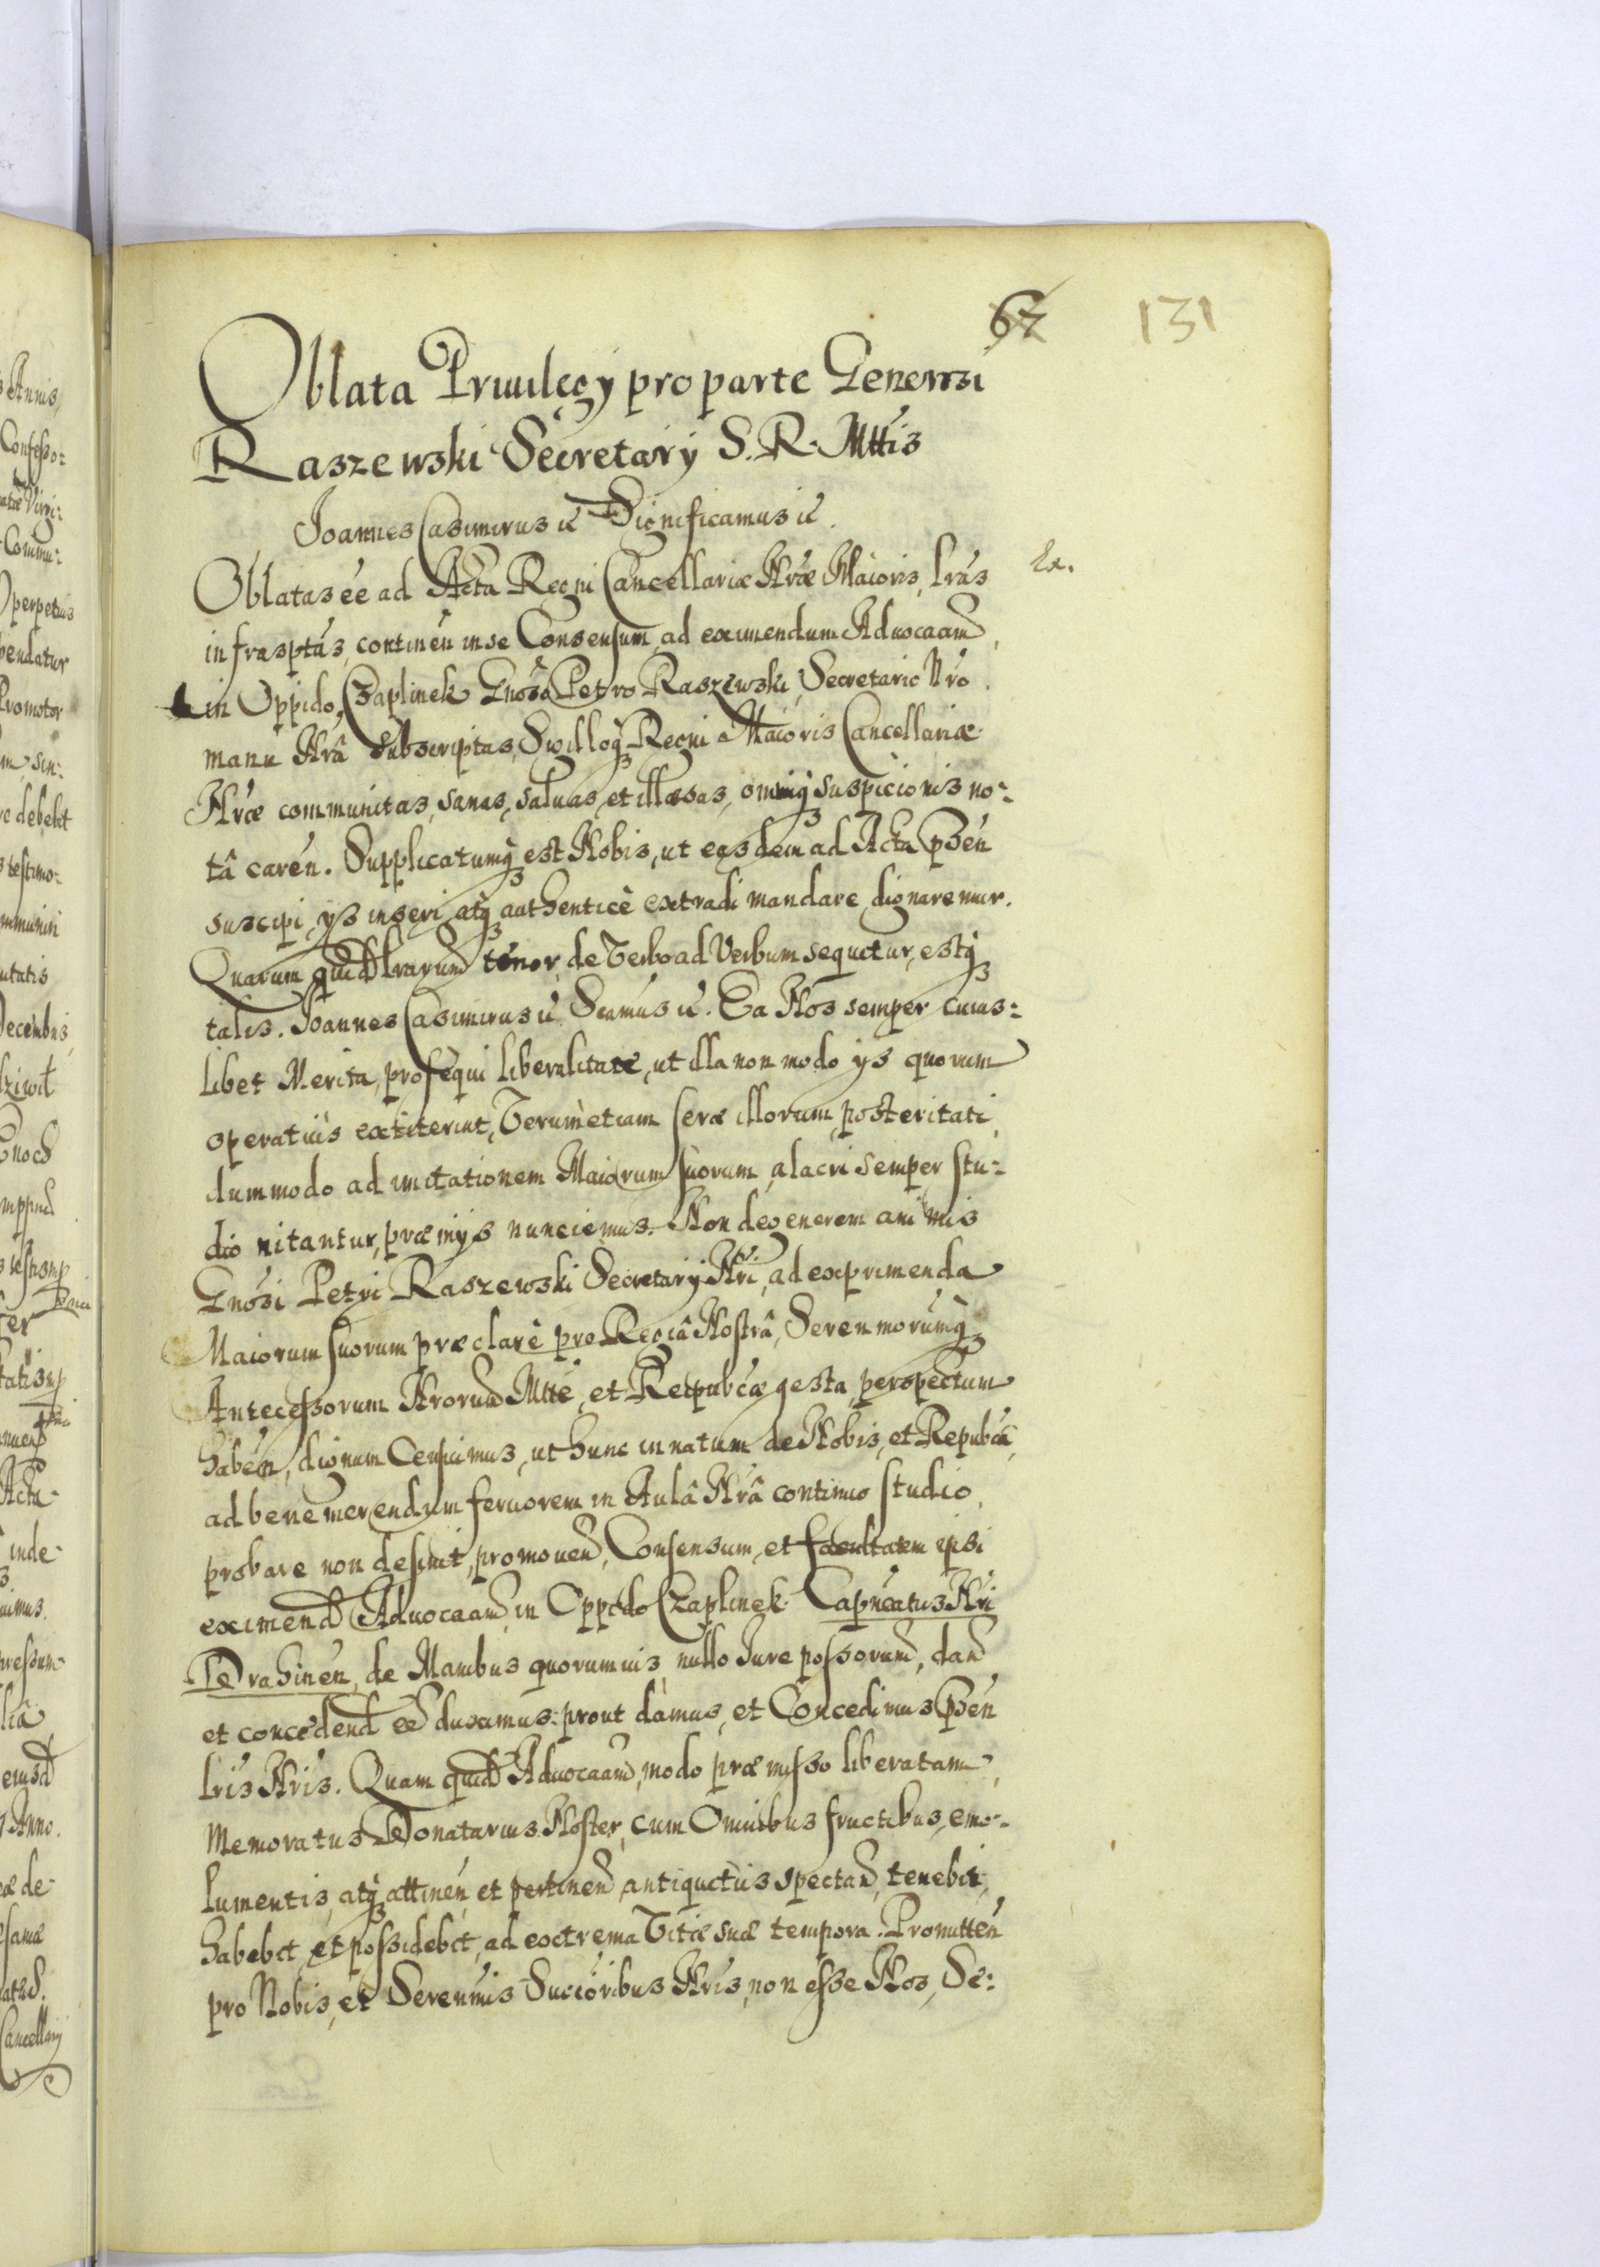 67 131
Oblata Priuilegij pro parte Generosi
Raszewski Secretarij S. R. Mttis
Joannes Casimirus &c Significamus &c.
Oblatas eē ad Acta Regni Cancellariæ Nræ Maioris, Lras
infrasptas, continēn in se Consensum, ad eximendum Aduocaam
in Oppido, Czaplinek Gnoso Petro Raszewski, Secretario Nro
manu Nrâ Subscriptas, Sigilloq; Regni Maioris Cancellariæ
Nræ communitas, sanas, saluas, et illæsas, omniq; suspicionis no-
tâ carēn. Supplicatumq; est Nobis, ut easdem ad Acta psēn
suscipi, ijs inseri, atq; authenticè extradi mandare dignaremur.
Quarum quid Lrarum tenor, de Verbo ad Verbum sequitur, estq;
talis. Joannes Casimirus &c Scamus &c. Ea Nos semper cuius-
libet Merita, prosequi liberalitate, ut illa non modo ijs quorum
operatius extiterint, Verumetiam seræ illorum, posteritati,
dummodo ad imitationem Maiorum suorum, alacri semper stu-
dio nitantur, præmijs nunciemus. Non degenerem animis
Gnosi Petri Raszewski Secretarij Nri, ad exprimenda
Maiorum suorum præclarè pro Regiâ Nostrâ, Serenmorumq;
Antecessorum Nrorum Mtte, et Reipubcæ gesta, perspectum
habēn, dignum Censuimus, ut hunc innatum de Nobis, et Repubcâ,
ad bene merendum feruorem in Aulâ Nrâ continuo studio
probare non desinit, promouen, Consensum, et facultatem ipsi
eximend Aduocaam, in Oppido Czaplinek Capneatus Nri
Drahinēn, de Manibus quorumuis, nullo Jure possorum, dan
et concedend eē duximus: prout damus, et Concedimus psēn
Lris Nris. Quam quid Aduocaam, modo præmisso liberatam,
Memoratus Donatarius Noster, cum Omnibus fructibus, emo-
lumentis, atq; attinēn et pertinen antiquitus spectan, tenebit,
habebit, et possidebit, ad extrema Vitæ suæ tempora. Promittēn
pro Nobis, et Serenmis Succioribus Nris, non esse Nos, Se-